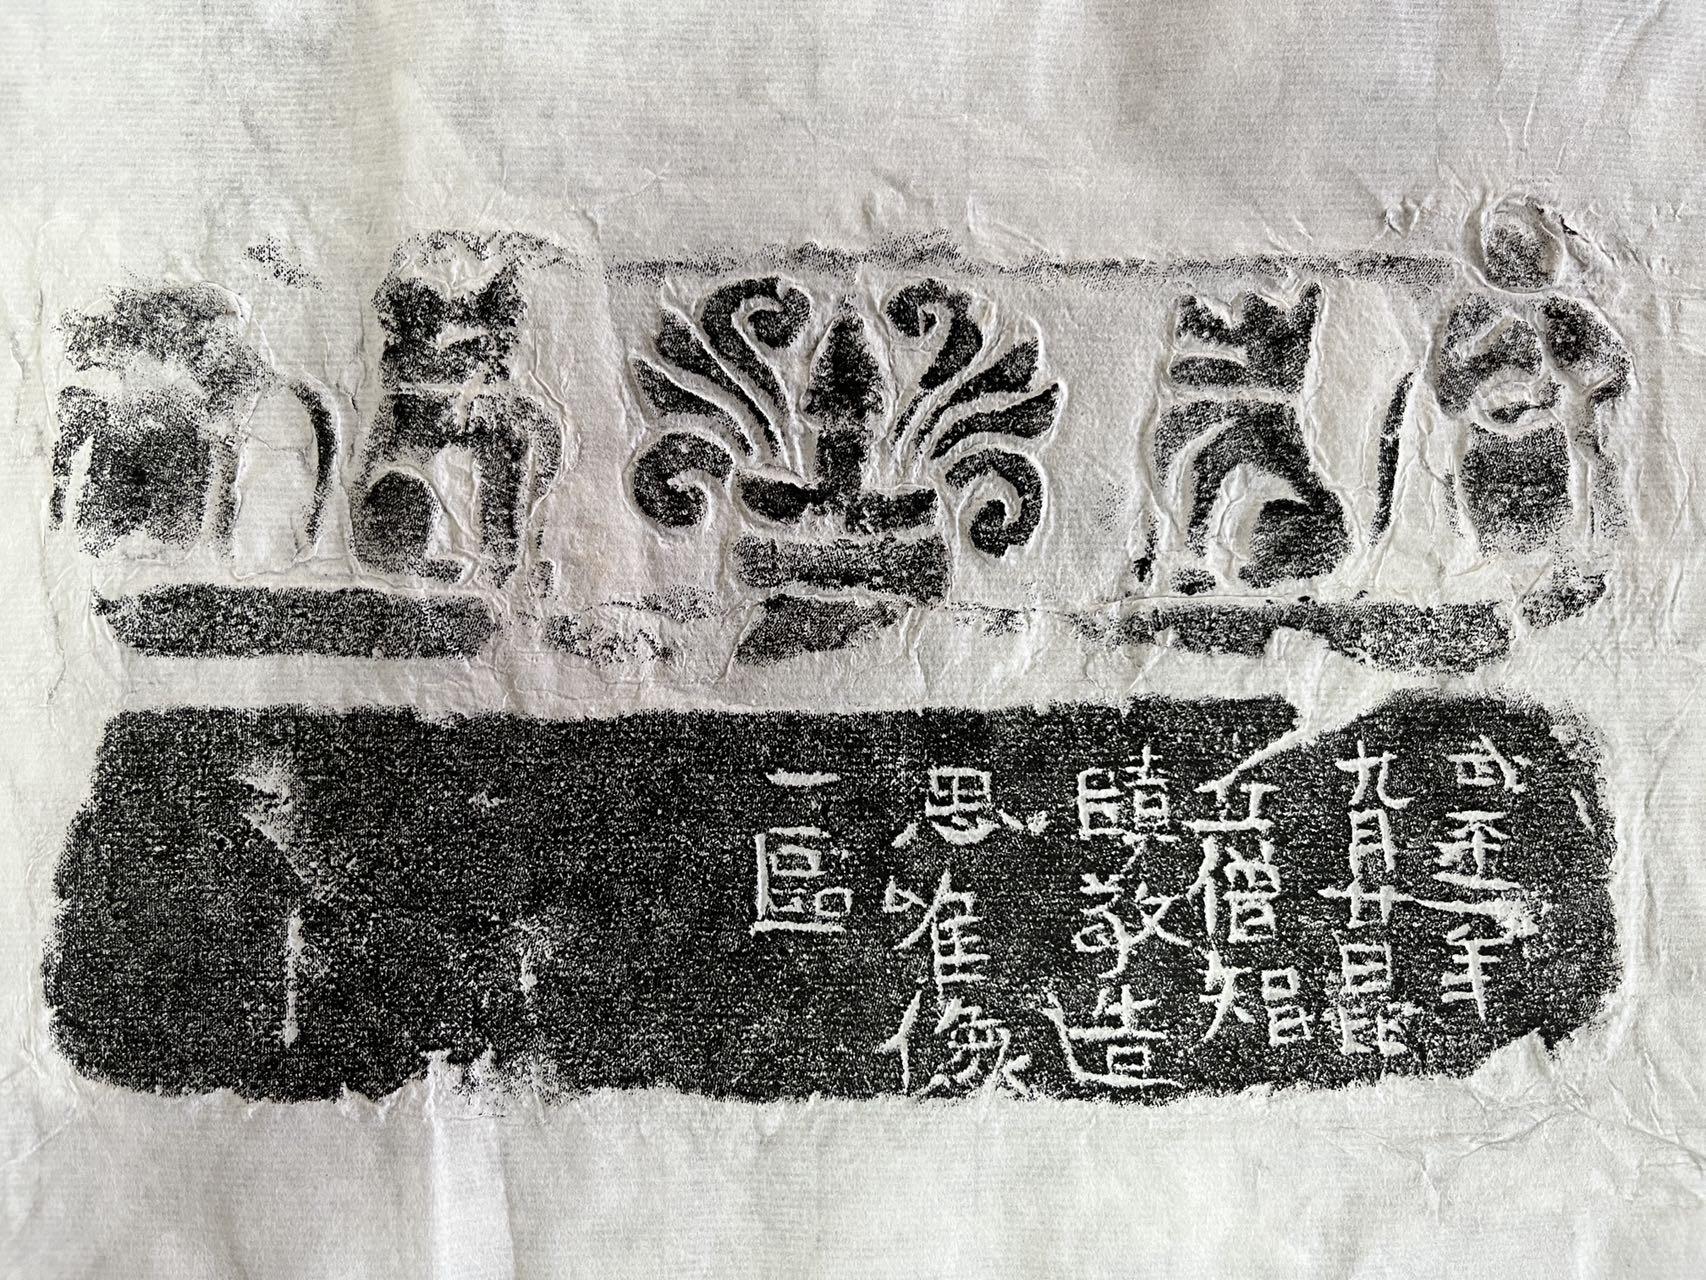 武平年
九月廿日比
丘僧智
賾敬造
思唯像
一區